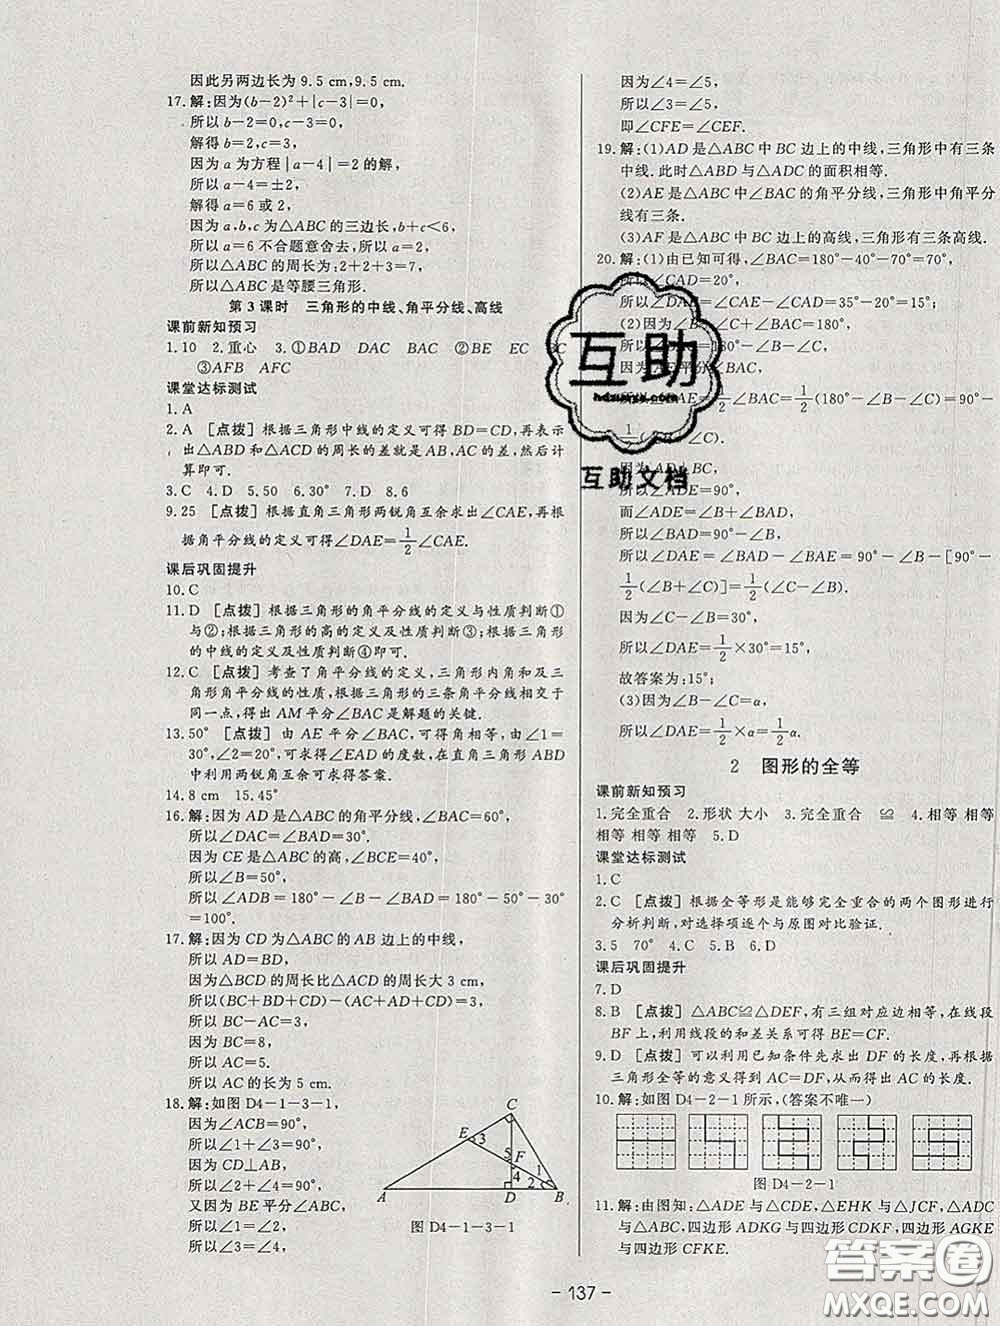 因此另两边长为 9.5 cm,9.5 cm.
17.解:因为(b-2)²+|c-3|=0,
所以 b-2=0,c-3=0,
解得 b=2,c=3,
因为 a 为方程|a-4|=2 的解,
所以 a-4=±2,
解得 a=6 或 2,
因为 a,b,c 为△ABC 的三边长,b+c<6,
所以 a=6 不合题意舍去,所以 a=2,
所以△ABC 的周长为:2+2+3=7,
所以△ABC 是等腰三角形.
第 3 课时 三角形的中线、角平分线、高线
课前新知预习
1.10 2.重心 3.①BAD DAC BAC ②BE EC BC
③AFB AFC
课堂达标测试
1.A
2.A [点拨] 根据三角形中线的定义可得 BD=CD,再表示
出△ABD 和△ACD 的周长的差就是 AB,AC 的差,然后计
算即可.
3.C 4.D 5.50 6.30° 7.D 8.6
9.25 [点拨] 根据直角三角形两锐角互余求出∠CAE,再根
据角平分线的定义可得∠DAE=1/2∠CAE.
课后巩固提升
10.C
11.D [点拨] 根据三角形的角平分线的定义与性质判断①
与②;根据三角形的高的定义及性质判断③;根据三角形
的中线的定义及性质判断④即可.
12.C [点拨] 考查了角平分线的定义,三角形内角和及三
角形角平分线的性质,根据三角形的三条角平分线相交于
同一点,得出 AM 平分∠BAC 是解题的关键.
13.50° [点拨] 由 AE 平分∠BAC,可得角相等,由∠1=
30°,∠2=20°,可求得∠EAD 的度数,在直角三角形 ABD
中利用两锐角互余可求得答案.
14.8 cm 15.45°
16.解:因为 AD 是△ABC 的角平分线,∠BAC=60°,
所以∠DAC=∠BAD=30°,
因为 CE 是△ABC 的高,∠BCE=40°,
所以∠B=50°,
所以∠ADB=180°-∠B-∠BAD=180°-50°-30°
=100°.
17.解:因为 CD 为△ABC 的 AB 边上的中线,
所以 AD=BD,
因为△BCD 的周长比△ACD 的周长大 3 cm,
所以(BC+BD+CD)-(AC+AD+CD)=3,
所以 BC-AC=3,
因为 BC=8,
所以 AC=5.
所以 AC 的长为 5 cm.
18.解:如图 D4-1-3-1,
因为∠ACB=90°,
所以∠1+∠3=90°,
因为 CD⊥AB,
所以∠2+∠4=90°,
又因为 BE 平分∠ABC,
所以∠1=∠2,
所以∠3=∠4,
C
E 3
5 F
4 1
2
A D B
图 D4-1-3-1
因为∠4=∠5,
所以∠3=∠5,
即∠CFE=∠CEF.
19.解:(1)AD 是△ABC 中 BC 边上的中线,三角形中有三条
中线.此时△ABD 与△ADC 的面积相等.
(2)AE 是△ABC 中∠BAC 的角平分线,三角形中角平分
线有三条.
(3)AF 是△ABC 中 BC 边上的高线,三角形有三条高线.
20.解:(1)由已知可得,∠BAC=180°-40°-70°=70°,
所以∠CAD=20°,
所以∠DAE=∠CAE-∠CAD=35°-20°=15°;
(2)因为∠B+∠C+∠BAC=180°,
所以∠BAC=180°-∠B-∠C,
因为 AE 平分∠BAC,
所以∠BAE=1/2∠BAC=1/2(180°-∠B-∠C)=90°-
1/2(∠B+∠C).
因为 AD⊥BC,
所以∠ADE=90°,
而∠ADE=∠B+∠BAD,
所以∠BAD=90°-∠B,
所以∠DAE=∠BAD-∠BAE=90°-∠B-[90°-
1/2(∠B+∠C)]=1/2(∠C-∠B),
因为∠C-∠B=30°,
所以∠DAE=1/2×30°=15°,
故答案为:15°;
(3)因为∠B-∠C=α,
所以∠DAE=1/2×α=1/2α.
2 图形的全等
课前新知预习
1.完全重合 2.形状 大小 3.完全重合 ≌ 4.相等 相等
相等 相等 相等 5.D
课堂达标测试
1.C
2.C [点拨] 根据全等形是能够完全重合的两个图形进行
分析判断,对选择项逐个与原图对比验证.
3.5 70° 4.C 5.B 6.D
课后巩固提升
7.D
8.B [点拨] △ABC≌△DEF,有三组对应边相等,在线段
BF 上,利用线段的和差关系可得 BE=CF.
9.D [点拨] 可以利用已知条件先求出 DF 的长度,再根据
三角形全等的意义得到 DF=AC,从而得出 AC 的长度.
10.解:如图 D4-2-1 所示,(答案不唯一)
图 D4-2-1
11.解:由图知:△ADE 与△CDE,△EHK 与△JCF,△ADC
与△ABC,四边形 ADKG 与四边形 CDKF,四边形 AGKE
与四边形 CFKE.
- 137 -
互助
hdzuoye.com
互助文档
答案圈
MXQE.COM